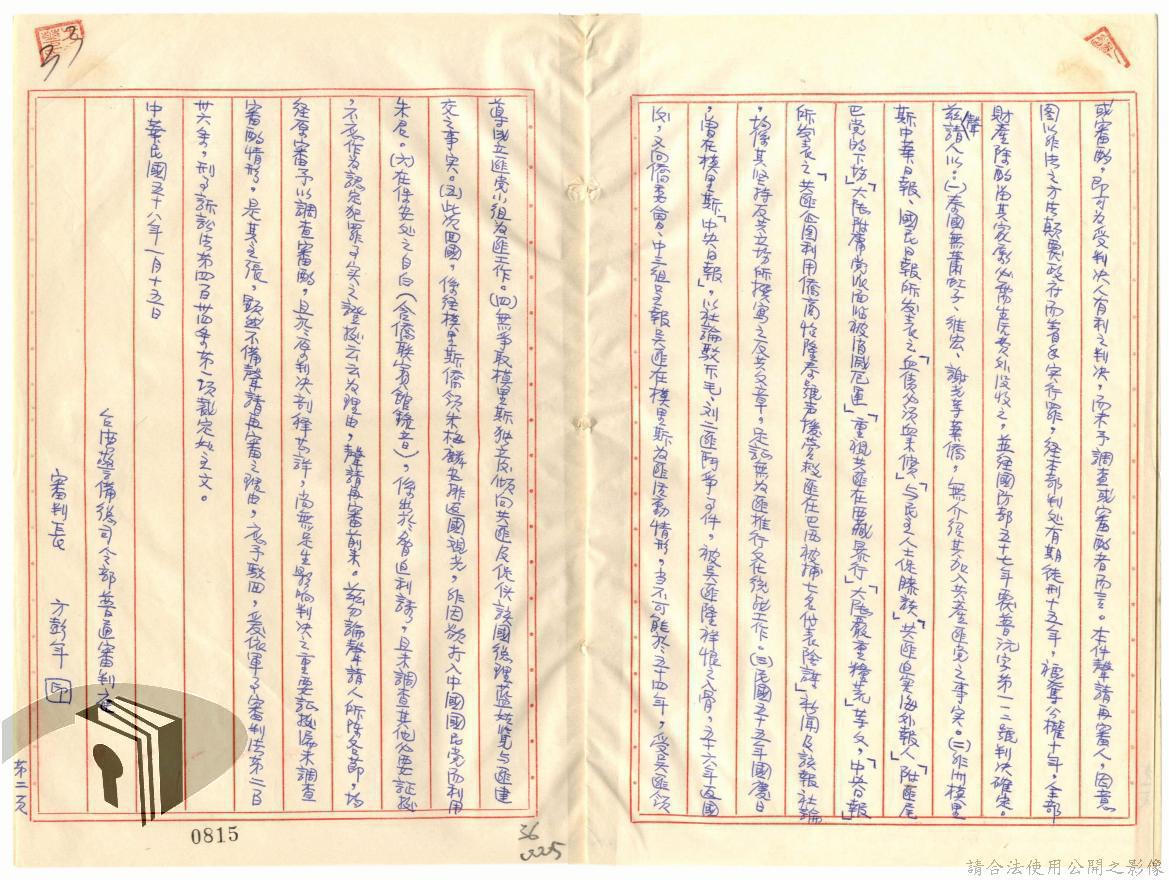 或審酌，即可為受判決人有利之判決，而未予調查或審酌者而言。本件聲請再審人，因意
圖以非法之方法顛覆政府而著手實行罪，經本部判處有期徒刑十五年，褫奪公權十年，全部
財產除酌留其家屬必需生活費外沒收之，並經國防部五十七年覆普沅字第一一二號判決確定。
茲據聲請人以：(一)泰國無蕭虹子、維宏、謝光等華僑，無介紹其加入共產匪党之事实。(二)非洲模里
斯中華日報、國民日報所发表之「血債必須血來償」「与民主人士保滕談」「共匪迫害海外報人」「附匪尾
巴党的下坊」「大陸附庸党派面临被消滅厄運」「重視共匪在西藏暴行」「大陸嚴重糧荒」等文，「中央日報」
所发表之「共匪企圖利用僑商怡隆泰號声援营救匪在巴西被捕七名代表陰謀」新聞及該報社論
，均係其坚持反共立场所撰寫之反共文章，足証無為匪推行文化統战工作。(三)民國五十五年國慶日
，曾在模里斯「中央日報」，以社論駁斥毛、刘二匪鬥爭事件，被吳匪隆祥恨之入骨，五十六年返國
後，又向僑委會、中三組呈報吳匪在模里斯為匪活動情形，当不可能於五十四年，受吳匪領
導成立匪党小組為匪工作。(四)無爭取模里斯独立及傾向共匪及促使該國總理藍姑覧与匪建
交之事实。(五)此次回國，係經模里斯僑領朱梅麟安排返國觀光，非因欲打入中國國民党而利用
朱君。(六)在保安处之自白（含僑联宾館錄音），係出於脅迫利誘，且未調查其他必要証據
，不应作為認定犯罪事实之證據云云為理由，聲請再審前來。茲勿論聲請人所陳各節，均
經原審予以調查審酌，且於原判決剖释甚詳，尚無足生影响判決之重要証據漏未調查
審酌情形。是其主張，顯然不備聲請再審之理由，应予駁回，爰依軍事審判法第二百
卅六条，刑事訴訟法第四百卅四条第一項裁定如主文。
中華民國五十八年一月十五日
台湾警備總司令部普通審判庭
審判長　方彭年　印
第二頁
0815
36
225
33
請合法使用公開之影像